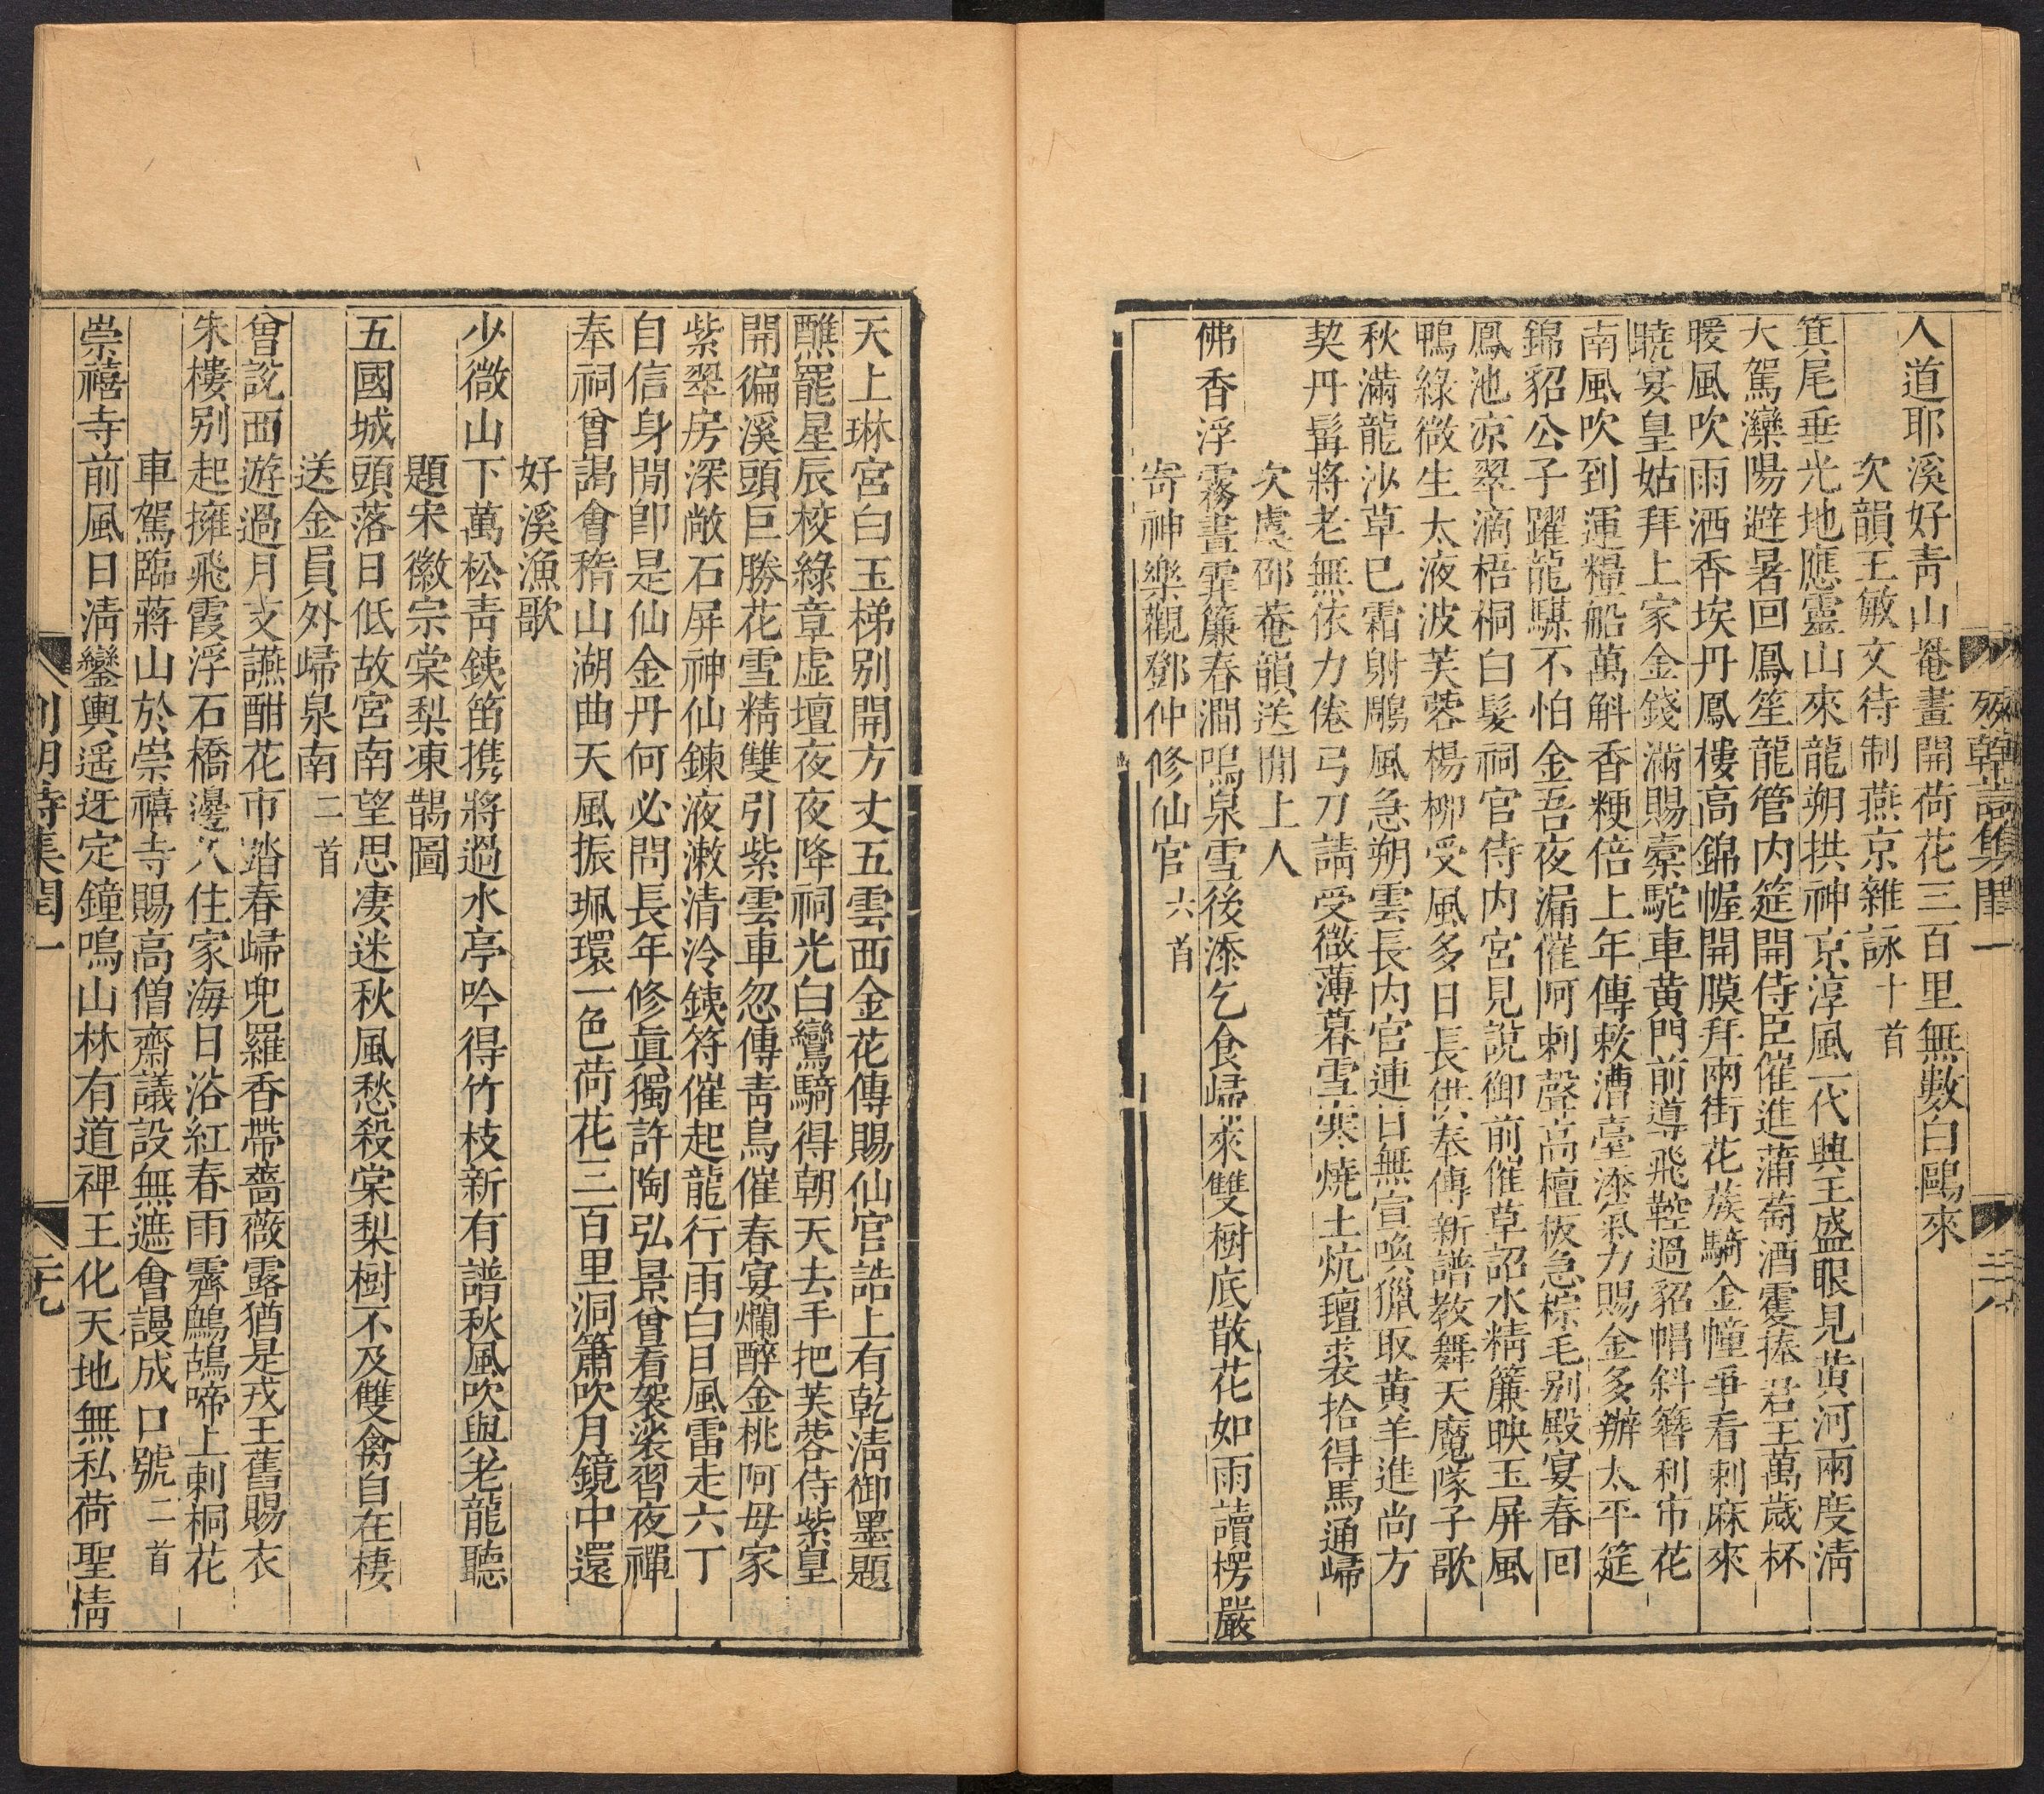 人道耶溪好青山罨畫開荷花三百里無數白鷗來
次韻王敏文待制燕京雜詠十首
箕尾垂光地應靈山來龍朔拱神京淳風一代興王盛眼見黃河兩度清
大駕灤陽避暑回鳳笙龍管内筵開侍臣催進蒲萄酒䨥捧君王萬歲杯
暖風吹雨洒香埃丹鳳樓高錦幄開膜拜兩街花蔟騎金幢爭看剌麻來
曉宴皇姑拜上家金錢滿賜槖駝車黃門前導飛鞚過貂帽斜簪利市花
南風吹到運糧船萬斛香粳倍上年傳敕漕臺溙氣力賜金多辦太平筵
錦貂公子躍龍驤不怕金吾夜漏催阿剌聲高檀板急棕毛别殿宴春回
鳳池凉翠滴梧桐白髮祠官侍内宮見說御前催草詔水精簾映玉屏風
鴨綠微生太液波芙蓉楊柳受風多日長供奉傳新譜教舞天魔隊子歌
秋滿龍沙草已霜射鵰風急朔雲長内官連日無宣喚獵取黃羊進尚方
契丹髯將老無依力倦弓刀請受微薄暮雪寒燒土炕氊裘拾得馬通歸
次虞邵菴韻送閒上人
佛香浮霧晝霏簾春澗鳴泉雪後溙乞食歸來雙樹底散花如雨讀楞嚴
寄神樂觀鄧仲修仙官六首
列朝詩集閏一
二八
天上琳宮白玉梯别開方丈五雲西金花傳賜仙官誥上有乾淸御墨題
醮罷星辰校綠章虛壇夜夜降祠光白鸞騎得朝天去手把芙蓉侍紫皇
開徧溪頭巨勝花雪精雙引紫雲車忽傳青鳥催春宴爛醉金桃阿母家
紫翠房深敞石屏神仙鍊液漱清泠鐵符催起龍行雨白日風雷走六丁
自信身閒卽是仙金丹何必問長年修眞獨許陶弘景曾看袈裟習夜禪
奉祠曾謁會稽山湖曲天風振珮環一色荷花三百里洞簫吹月鏡中還
好溪漁歌
少微山下萬松靑鐵笛携將過水亭吟得竹枝新有譜秋風吹與老龍聽
題宋徽宗棠梨凍鵲圖
五國城頭落日低故宮南望思凄迷秋風愁殺棠梨樹不及雙禽自在棲
送金員外歸泉南二首
曾說西遊過月支讌酣花市踏春歸兜羅香帶薔薇露猶是戎王舊賜衣
朱樓别起擁飛霞浮石橋邊人住家海日浴紅春雨霽鷓鴣啼上刺桐花
車駕臨蔣山於崇禧寺賜高僧齋議設無遮會謾成口號二首
崇禧寺前風日淸鑾輿遥迓定鐘鳴山林有道禪王化天地無私荷聖情
列朝詩集閏一
二九